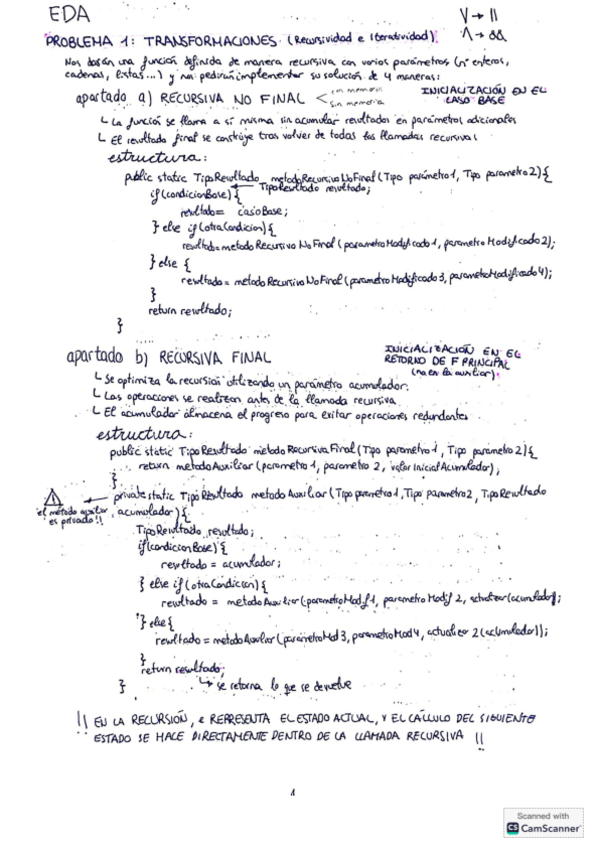 EDA
V → ||
Λ → &&
PROBLEMA 1: TRANSFORMACIONES (Recursividad e Iteratividad)
Nos darán una función definida de manera recursiva con varios parámetros (nº enteros,
cadenas, listas...) y nos pedirán implementar su solución de 4 maneras:
apartado a) RECURSIVA NO FINAL < con memoria
sin memoria
INICIALIZACIÓN EN EL
CASO BASE
└ La función se llama a sí misma sin acumular resultados en parámetros adicionales
└ El resultado final se construye tras volver de todas las llamadas recursivas
estructura:
public static TipoResultado metodoRecursivoNoFinal (Tipo parámetro1, Tipo parametro2) {
TipoResultado resultado;
if (condicionBase) {
resultado = casoBase;
} else if (otraCondicion) {
resultado = metodoRecursivoNoFinal (parametroModificado1, parametroModificado2);
} else {
resultado = metodoRecursivoNoFinal (parametroModificado3, parametroModificado4);
}
return resultado;
}
apartado b) RECURSIVA FINAL
INICIALIZACIÓN EN EL
RETORNO DE F PRINCIPAL
(no en la auxiliar).
└ Se optimiza la recursion utilizando un parámetro acumulador.
└ Las operaciones se realizan antes de la llamada recursiva.
└ El acumulador almacena el progreso para evitar operaciones redundantes
estructura:
public static TipoResultado metodoRecursivaFinal (Tipo parametro1, Tipo parametro2) {
return metodoAuxiliar (parametro1, parametro 2, valorInicialAcumulador);
}
⚠ ← private static TipoResultado metodoAuxiliar (Tipo parametro1, Tipo parametro2, TipoResultado
el método auxiliar
es privado!!
acumulador) {
TipoResultado resultado;
if (condicionBase) {
resultado = acumulador;
} else if (otraCondicion) {
resultado = metodoAuxiliar (parametroModif1, parametro Modif 2, actualizar(acumulador));
} else {
resultado = metodoAuxiliar (parámetroMod3, parametroMod4, actualizar 2 (acumulador));
}
return resultado;
↳ se retorna lo que se devuelve
}
!! EN LA RECURSIÓN, e REPRESENTA EL ESTADO ACTUAL, Y EL CÁLCULO DEL SIGUIENTE
ESTADO SE HACE DIRECTAMENTE DENTRO DE LA LLAMADA RECURSIVA !!
1
Scanned with
CS CamScanner